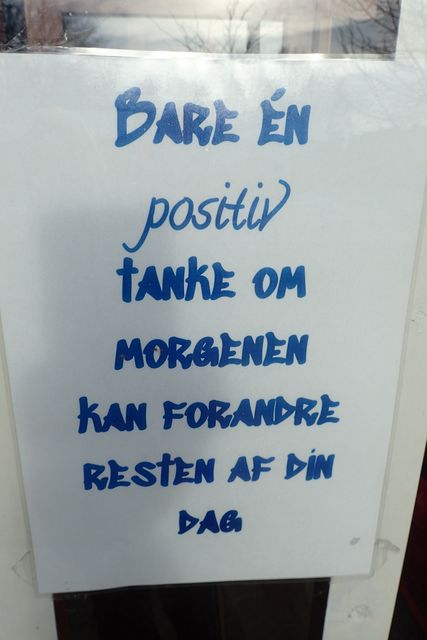 BARE ÉN
positiv
TANKE OM
MORGENEN
KAN FORANDRE
RESTEN AF DIN
DAG